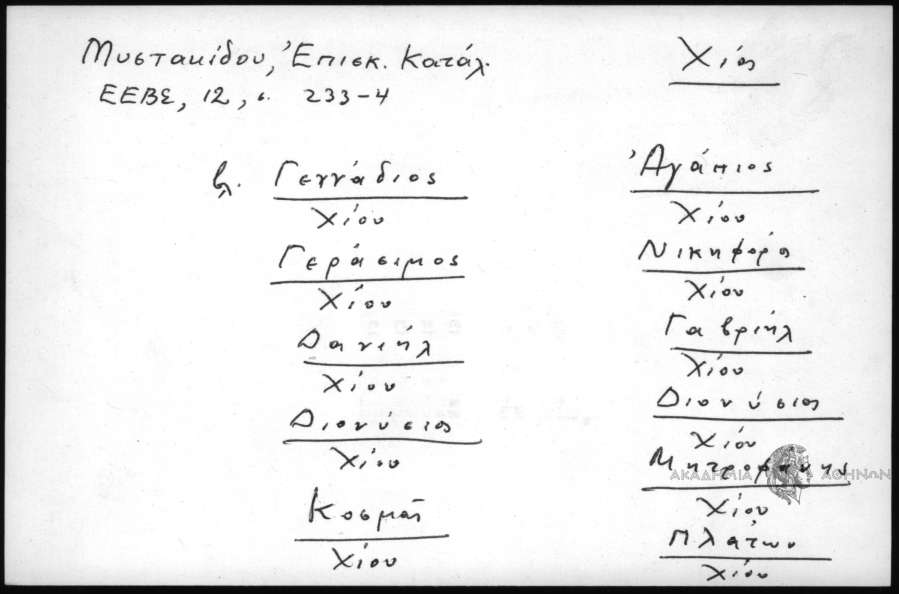 Μυστακίδου, Ἐπισκ. Κατάλ.
ΕΕΒΣ, 12, σ. 233-4
Χίος
βλ. Γεννάδιος
Χίου
Γεράσιμος
Χίου
Δανιήλ
Χίου
Διονύσιος
Χίου
Κοσμᾶς
Χίου
Ἀγάπιος
Χίου
Νικηφόρος
Χίου
Γαβριήλ
Χίου
Διονύσιος
Χίου
Μητροφάνης
Χίου
Πλάτων
Χίου
ΑΚΑΔΗΜΙΑ ΑΘΗΝΩΝ